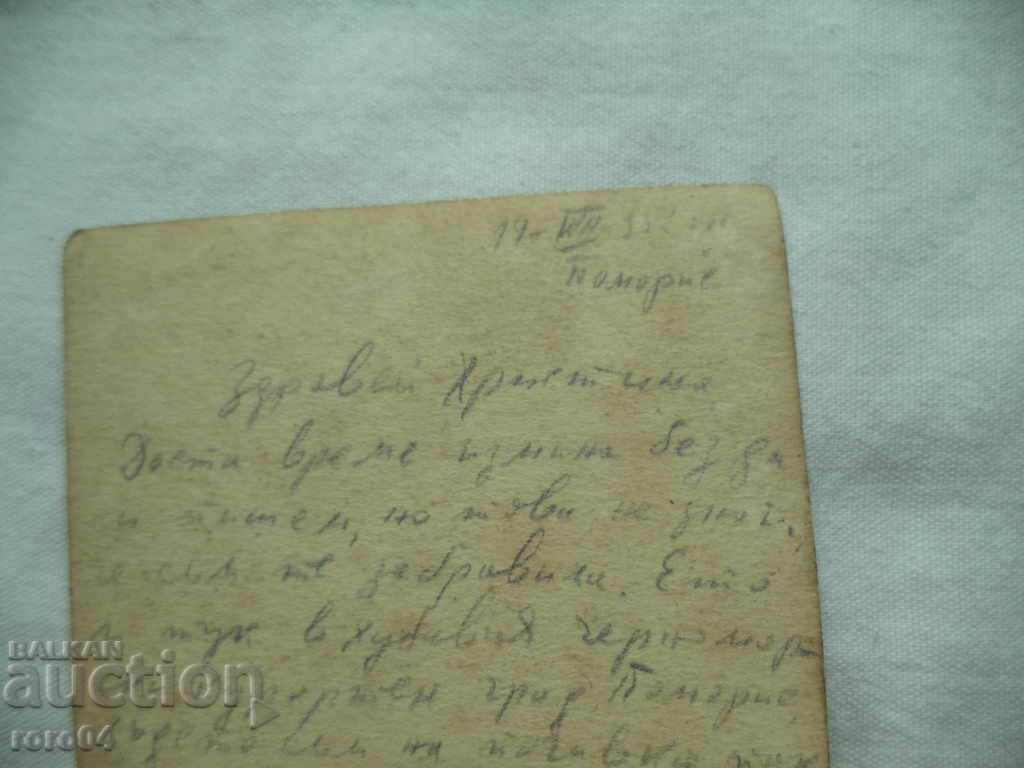 19 VII
Поморие
Здравей Христина
Доста време измина без да
пишем, но това не знач
съм те забравила. Ето
тук в хубавия черномор
курортен град Поморие,
където съм на почивка
BALKAN
auction
roro04